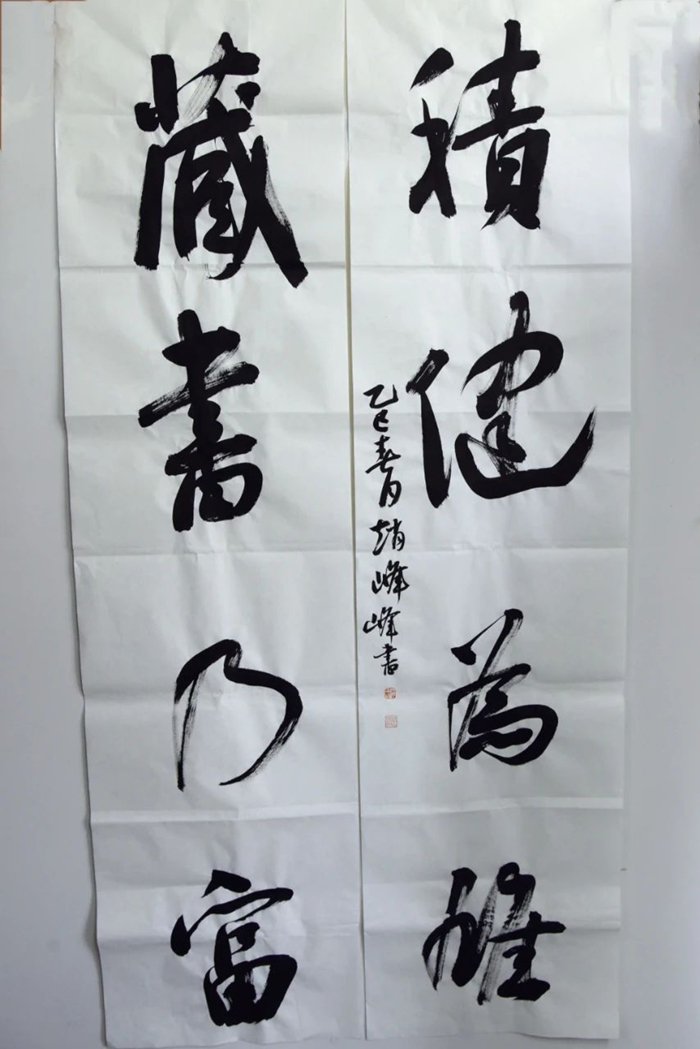 積健為雄
乙巳春月趙峰峰書
藏書乃富